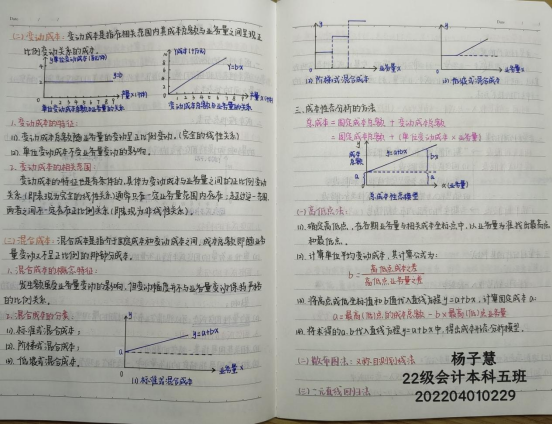 (二)变动成本:变动成本是指在相关范围内其成本总额与业务量之间呈现正
比例变动关系的成本。
y=b
Y=b·x
产量x(件)
产量x(件)
单位变动成本与业务量的关系
变动成本总额与业务量的关系
1.变动成本的特征:
(1).变动成本总额随业务量的变动呈正比例变动,(完全的线性关系)
(2).单位变动成本不受业务量变动的影响。
2.变动成本的相关范围:
变动成本的特征也是有条件的,具体为变动成本与业务量之间的正比例变动
关系(即表现为完全的线性关系)通常只在一定业务量范围内存在;
两者之间不一定存在正比例关系(即表现为非线性关系)。
(三)混合成本:混合成本是指介于固定成本和变动成本之间,
量变动又不呈正比例的那部分成本。
1.混合成本的概念特征:
发生额虽受业务量变动的影响,但变动幅度并不与业务量变动保持严格
的比例关系。
2.混合成本的分类:
(1).标准式混合成本;
(2).阶梯式混合成本;
(3).低坡式混合成本。
y
y=a+bx
a
业务量x
(1)标准式混合成本
y
业务量x
(2)阶梯式混合成本
y
业务量x
(3)低坡式混合成本
三.成本性态分析的方法
总成本=固定成本总额+变动成本总额
=固定成本总额+(单位变动成本×业务量)
y
成本总额
y=a+bx
bx
a
a
x(业务量)
总成本性态模型
(一)高低点法:
(1).确定高低点,在各期业务量与相关成本坐标点中,以业务量为准找出最高点
和最低点。
(2).计算单位平均变动成本,其计算公式为:
b=高低点成本之差
高低点业务量之差
(3).将高点或低点坐标值和b值代入直线方程y=a+bx,计算固定成本a:
a=最高(低)点的成本总额-b×最高(低)点业务量
(4).将求得的a.b代入直线方程y=a+bx中,得出成本性态分析模型。
(二)散布图法:又称目测画线法
(三)一元直线回归法
杨子慧
22级会计本科五班
202204010229